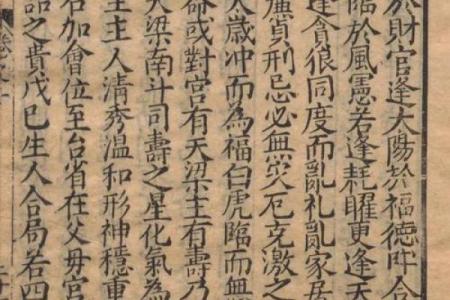 於財官逢太陽於福德合
臨於風憲若逢耗曜更逢天
逢貪狼同度而亂礼亂家居
廉貞刑忌必無災厄克激之
太歲冲而為福白虎臨而無
命或對宮有天梁主有壽乃
天梁南斗司壽之星化氣為
主主人清秀温和形神穩重
右加會位至台省在父母宮
品之貴戊巳生人合局若四